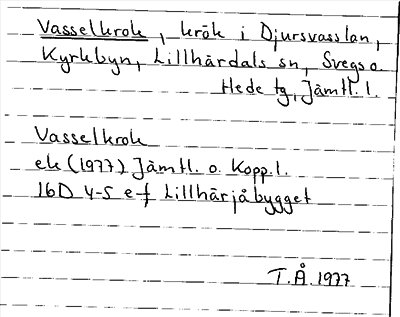 Vasselkrok, krök i Djursvasslan,
Kyrkbyn, Lillhärdals sn, Svegs o
Hede tg, Jämtl. l.
Vasselkrok
ek (1977) Jämtl. o. Kopp. l.
16D 4-5 e-f Lillhärjåbygget
T.Å. 1977